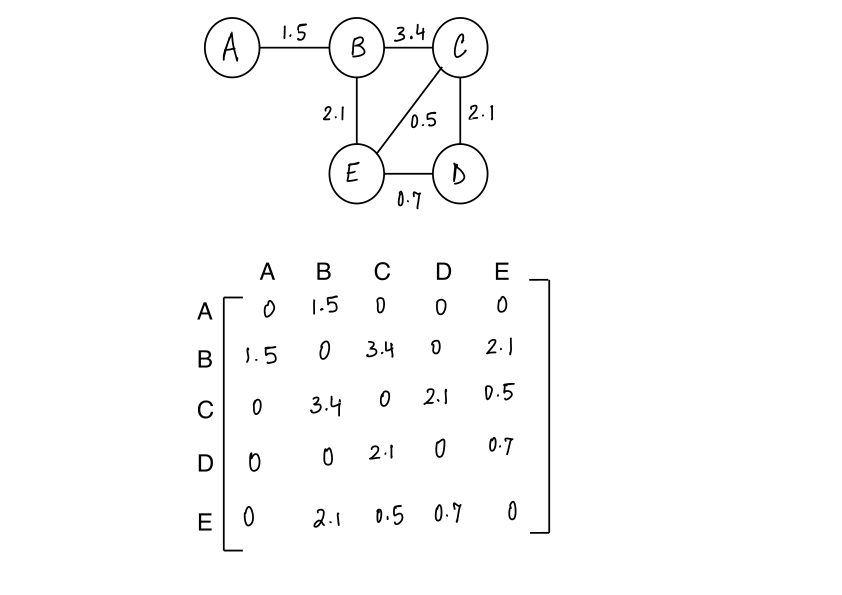 1.5 3.4
A B C
2.1 0.5 2.1
E D
0.7
A B C D E
A 0 1.5 0 0 0
B 1.5 0 3.4 0 2.1
C 0 3.4 0 2.1 0.5
D 0 0 2.1 0 0.7
E 0 2.1 0.5 0.7 0